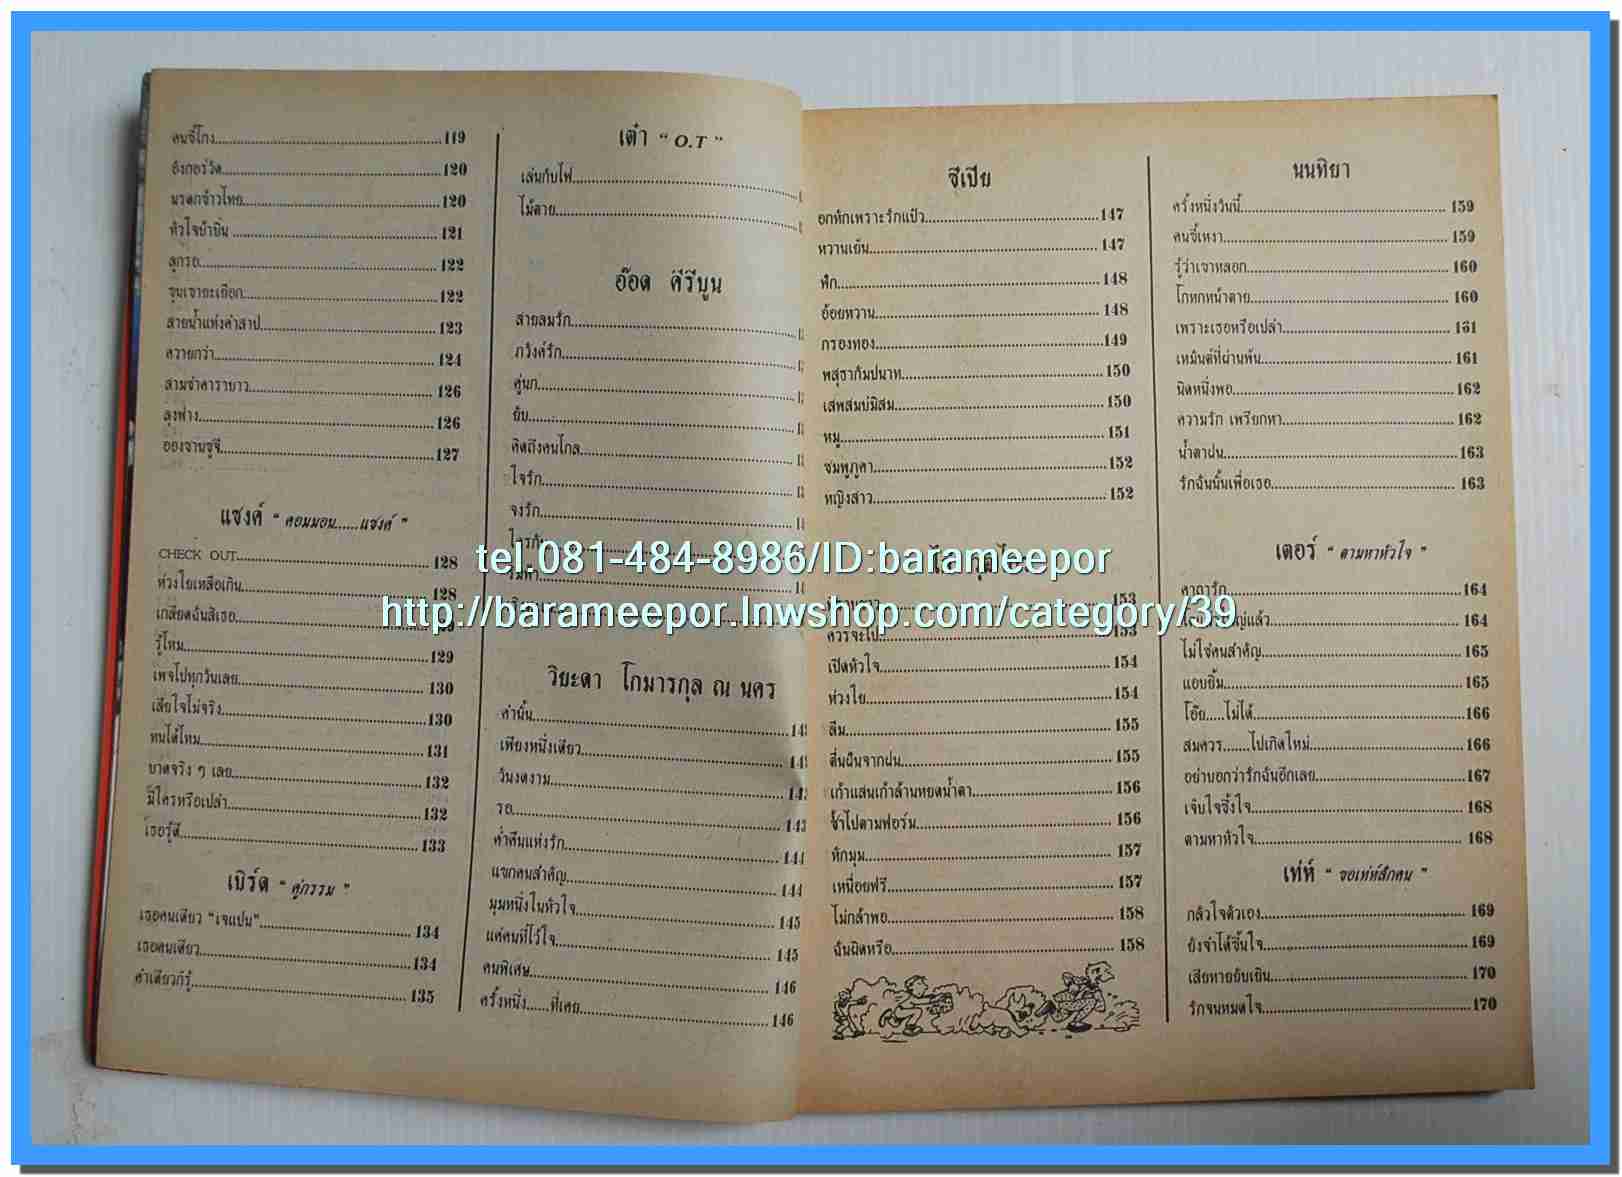 คนขี้โกง 119
อังกอร์วัด 120
นรกข้าวไทย 120
หัวใจบ้าบิ่น 121
ลูกรอ 122
ขุนเขายะเยือก 122
สายน้ำแห่งคำสาป 123
ควายกว่า 124
สามช่าคาราบาว 126
ลุงฟาง 126
อองซานซูจี 127
แซงค์ " คอมมอน.....แซงค์ "
CHECK OUT 128
ห่วงใยเหลือเกิน 128
เกลียดฉันสิเธอ
รู้ไหม 129
เพ้อไปทุกวันเลย 130
เสียใจไม่จริง 130
ทนได้ไหม 131
บาดจริง ๆ เลย 132
มีใครหรือเปล่า 132
เธอรู้ดี 133
เบิร์ด " คู่กรรม "
เธอคนเดียว "เจแปน" 134
เธอคนเดียว 134
คำเดียวก็รู้ 135
เต๋า " O.T "
เล่นกับไฟ
ไม้ตาย
อ๊อด คีรีบูน
สายลมรัก
ภวังค์รัก
คู่นก
ยับ
คิดถึงคนไกล
ใจรัก
จงรัก
วิยะดา โกมารกุล ณ นคร
ค่ำนั้น
เพียงหนึ่งเดียว
วันงดงาม
รอ 143
ค่ำคืนแห่งรัก 144
แขกคนสำคัญ 144
มุมหนึ่งในหัวใจ 145
แค่คนที่ไว้ใจ 145
คนพิเศษ 146
ครั้งหนึ่ง......ที่เคย 146
ซีเปีย
อกหักเพราะรักแป้ว 147
หวานเย็น 147
พิก 148
อ้อยหวาน 148
กรองทอง 149
พสุธากัมปนาท 150
เสพสมบ่มิสม 150
หมู 151
ชมพูภูคา 152
หญิงสาว 152
153
ควรจะไป 153
เปิดหัวใจ 154
ห่วงใย 154
ลืม 155
ตื่นฝันจากฝน 155
เก้าแสนเก้าล้านหยดน้ำตา 156
ช้ำไปตามฟอร์ม 156
หักมุม 157
เหนื่อยฟรี 157
ไม่กล้าพอ 158
ฉันผิดหรือ 158
นนทิยา
ครั้งหนึ่งวันนี้ 159
คนขี้เหงา 159
รู้ว่าเขาหลอก 160
โกหกหน้าตาย 160
เพราะเธอหรือเปล่า 161
เหมันต์ที่ผ่านพ้น 161
นิดหนึ่งพอ 162
ความรัก เพรียกหา 162
น้ำตาฝน 163
รักฉันนั้นเพื่อเธอ 163
เตอร์ " ตามหาหัวใจ "
คาถารัก 164
164
ไม่ใช่คนสำคัญ 165
แอบยิ้ม 165
โอ๊ย.....ไม่ได้ 166
สมควร.......ไปเกิดใหม่ 166
อย่าบอกว่ารักฉันอีกเลย 167
เจ็บใจซึ้งใจ 168
ตามหาหัวใจ 168
เท่ห์ " ขอเท่ห์สักคน "
กลัวใจตัวเอง 169
ยังจำได้ขึ้นใจ 169
เสียหายยับเยิน 170
รักจนหมดใจ 170
tel.081-484-8986/ID:barameepor
http://barameepor.lnwshop.com/category/39